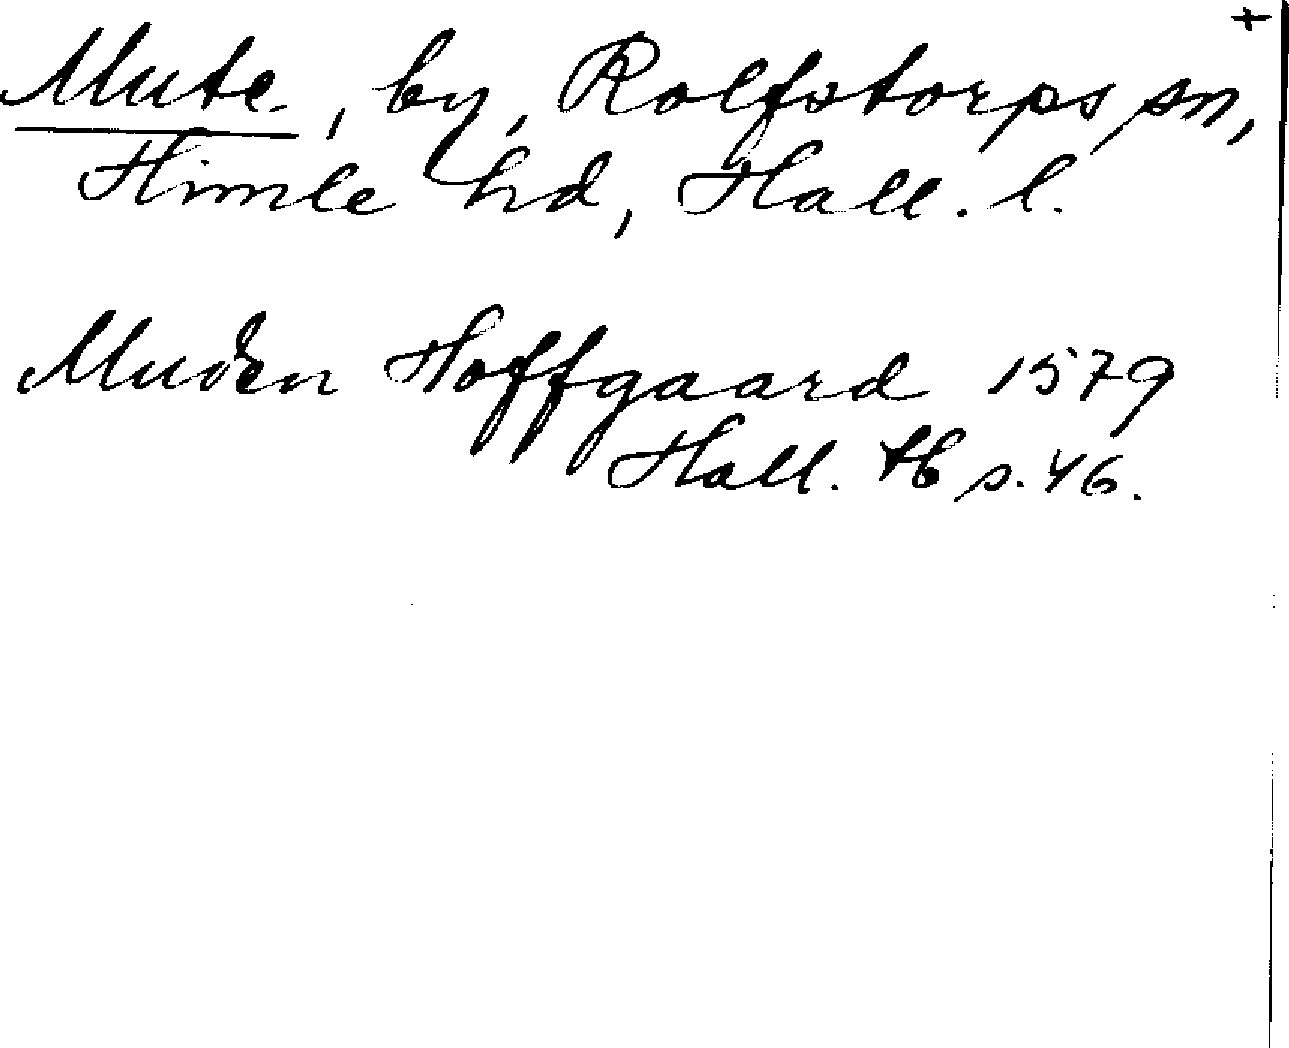 +
Mute, by, Rolfstorps sn,
Himle hd, Hall. l.
Muden Hoffgaard 1579
Hall. tb s. 46.